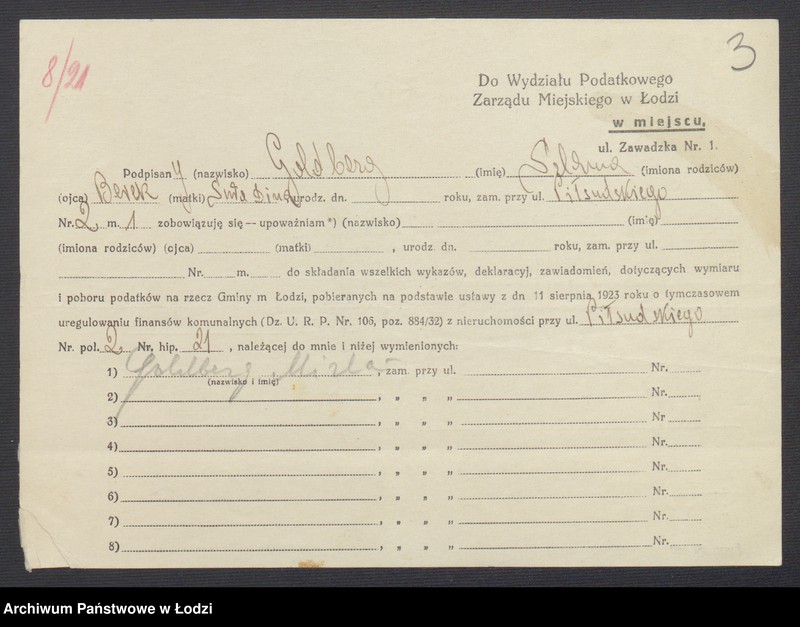 8/21
3
Do Wydziału Podatkowego
Zarządu Miejskiego w Łodzi
w miejscu,
ul. Zawadzka Nr. 1.
Podpisany (nazwisko) Goldberg (imię) (imiona rodziców)
(ojca) Berek (matki) urodz. dn. roku, zam. przy ul. Piłsudskiego
Nr. 2 m. 1 zobowiązuję się — upoważniam *) (nazwisko) (imię)
(imiona rodziców) (ojca) (matki) , urodz. dn. roku, zam. przy ul.
Nr. m. do składania wszelkich wykazów, deklaracyj, zawiadomień, dotyczących wymiaru
i poboru podatków na rzecz Gminy m Łodzi, pobieranych na podstawie ustawy z dn 11 sierpnia 1923 roku o tymczasowem
uregulowaniu finansów komunalnych (Dz. U. R. P. Nr. 106, poz. 884/32) z nieruchomości przy ul. Piłsudskiego
Nr. pol. 2 Nr. hip. 21 , należącej do mnie i niżej wymienionych:
1) Goldberg , zam. przy ul. Nr.
(nazwisko i imię)
2) , „ „ „ Nr.
3) , „ „ „ Nr
4) , „ „ „ Nr.
5) , „ „ „ Nr.
6) , „ „ „ Nr.
7) , „ „ „ Nr.
8) , „ „ „ Nr.
Archiwum Państwowe w Łodzi